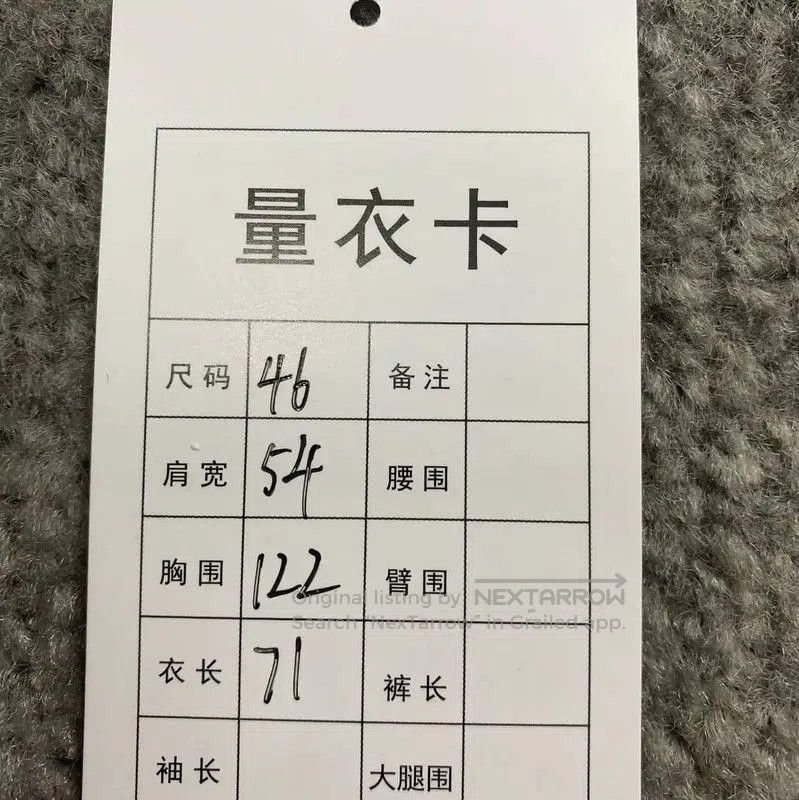 量衣卡
尺码 46 备注
肩宽 54 腰围
胸围 122 臂围
Original listing by NEXTARROW
Search "NexTarrow" in Grailed app.
衣长 71 裤长
袖长 大腿围